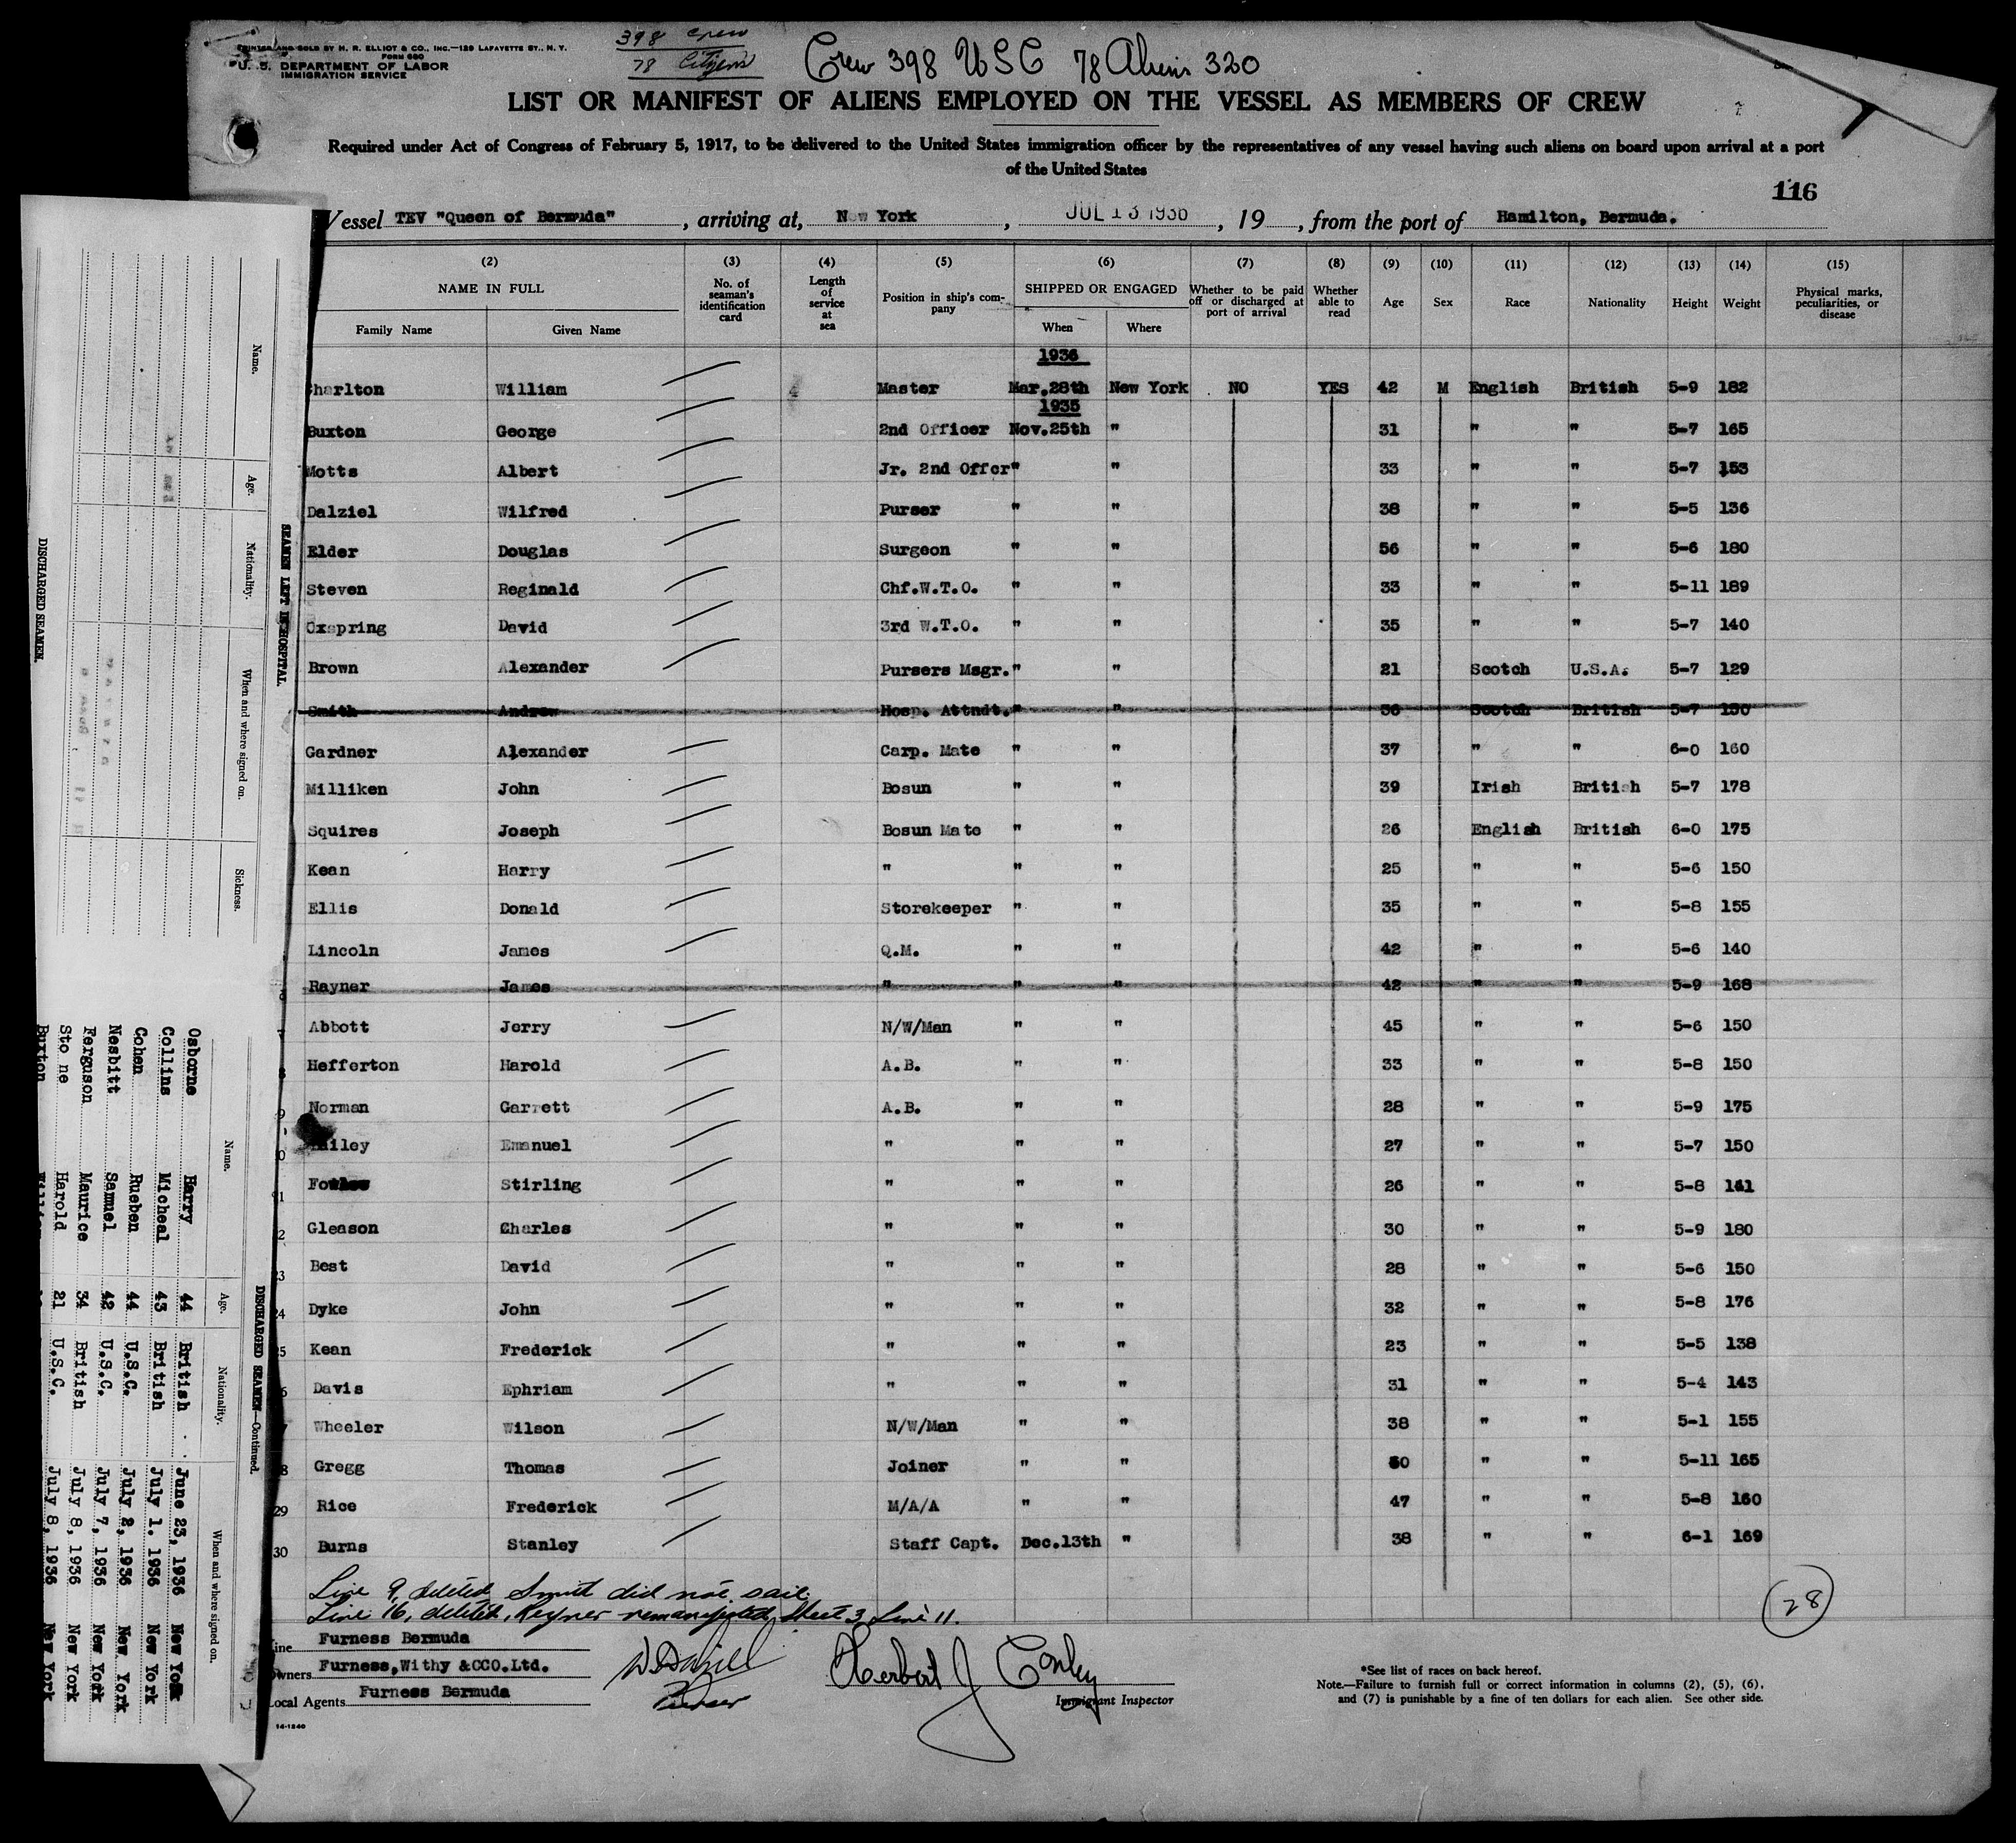 PRINTED AND SOLD BY H. R. ELLIOT & CO., INC.—129 LAFAYETTE ST., N. Y.
FORM 680
U. S. DEPARTMENT OF LABOR
IMMIGRATION SERVICE
398 Crew
78 Citizens
Crew 398 USC 78 Aliens 320
LIST OR MANIFEST OF ALIENS EMPLOYED ON THE VESSEL AS MEMBERS OF CREW
Required under Act of Congress of February 5, 1917, to be delivered to the United States immigration officer by the representatives of any vessel having such aliens on board upon arrival at a port
of the United States
116
Vessel TEV "Queen of Bermuda", arriving at, New York, JUL 13 1936, 19, from the port of Hamilton, Bermuda.
(2) (3) (4) (5) (6) (7) (8) (9) (10) (11) (12) (13) (14) (15)
NAME IN FULL No. of seaman's identification card Length of service at sea Position in ship's company SHIPPED OR ENGAGED Whether to be paid off or discharged at port of arrival Whether able to read Age Sex Race Nationality Height Weight Physical marks, peculiarities, or disease
Family Name Given Name When Where
1936
Charlton William Master Mar.28th New York NO YES 42 M English British 5-9 182
1935
Buxton George 2nd Officer Nov.25th " 31 " " 5-7 165
Motts Albert Jr. 2nd Offcr " " 33 " " 5-7 153
Dalziel Wilfred Purser " " 38 " " 5-5 136
Elder Douglas Surgeon " " 56 " " 5-6 180
Steven Reginald Chf.W.T.O. " " 33 " " 5-11 189
Oxspring David 3rd W.T.O. " " 35 " " 5-7 140
Brown Alexander Pursers Msgr. " " 21 Scotch U.S.A. 5-7 129
Smith Andrew Hosp. Attndt. " " 36 Scotch British 5-7 150
Gardner Alexander Carp. Mate " " 37 " " 6-0 160
Milliken John Bosun " " 39 Irish British 5-7 178
Squires Joseph Bosun Mate " " 26 English British 6-0 175
Kean Harry " " " 25 " " 5-6 150
Ellis Donald Storekeeper " " 35 " " 5-8 155
Lincoln James Q.M. " " 42 " " 5-6 140
Rayner James " " " 42 " " 5-9 168
Abbott Jerry N/W/Man " " 45 " " 5-6 150
Hefferton Harold A.B. " " 33 " " 5-8 150
Norman Garrett A.B. " " 28 " " 5-9 175
Emanuel " " " 27 " " 5-7 150
Stirling " " " 26 " " 5-8 141
Gleason Charles " " " 30 " " 5-9 180
Best David " " " 28 " " 5-6 150
24 Dyke John " " " 32 " " 5-8 176
Kean Frederick " " " 23 " " 5-5 138
Davis Ephriam " " " 31 " " 5-4 143
Wheeler Wilson N/W/Man " " 38 " " 5-1 155
Gregg Thomas Joiner " " 50 " " 5-11 165
29 Rice Frederick M/A/A " " 47 " " 5-8 160
30 Burns Stanley Staff Capt. Dec.13th " 38 " " 6-1 169
Line 9, deleted, Smith did not sail.
Line 16, deleted, Reyner remanifested Sheet 3 Line 11.
28
Line Furness Bermuda
Owners Furness,Withy &CCO.Ltd.
Local Agents Furness Bermuda
14-1240
Purser
Herbert J Conley
Immigrant Inspector
*See list of races on back hereof.
Note.—Failure to furnish full or correct information in columns (2), (5), (6),
and (7) is punishable by a fine of ten dollars for each alien. See other side.
SEAMEN LEFT IN HOSPITAL.
Name. Age. Nationality. When and where signed on. Sickness.
DISCHARGED SEAMEN.
DISCHARGED SEAMEN—Continued.
Name. Age. Nationality. When and where signed on.
Osborne Harry 44 British June 23, 1936 New York
Collins Micheal 43 British July 1. 1936 New York
Cohen Rueben 44 U.S.C. July 2, 1936 New York
Nesbitt Samuel 42 U.S.C. July 7, 1936 New York
Ferguson Maurice 34 British July 8, 1936 New York
Sto ne Harold 21 U.S.C. July 8, 1936 New York
Buxton